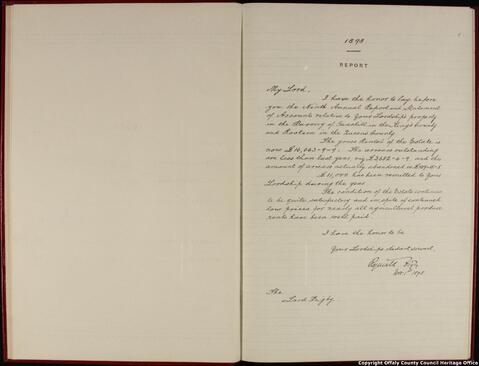 1898
REPORT
My Lord,
I have the honor to lay before
you the Ninth Annual Report and Statement
of Accounts relative to Your Lordships property
in the Barony of Geashill in the King's County
and in the Queens County
The gross Rental of the Estate is
now £16,063-9-9. The arrears outstanding
are less than last year, £3682-6-9, and the
amount of arrears actually abandoned is
£11,000 has been remitted to Your
Lordship during the year
The condition of the Estate continues
to be quite satisfactory and in spite of continued
low prices for nearly all agricultural produce
rents have been well paid.
I have the honor to be
Your Lordships obedient servant
Reginald Digby
1898
The
Lord Digby
Copyright Offaly County Council Heritage Office